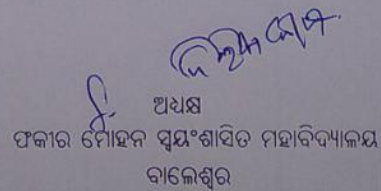 ଅଧ୍ୟକ୍ଷ
ଫକୀର ମୋହନ ସ୍ୱୟଂଶାସିତ ମହାବିଦ୍ୟାଳୟ
ବାଲେଶ୍ୱର